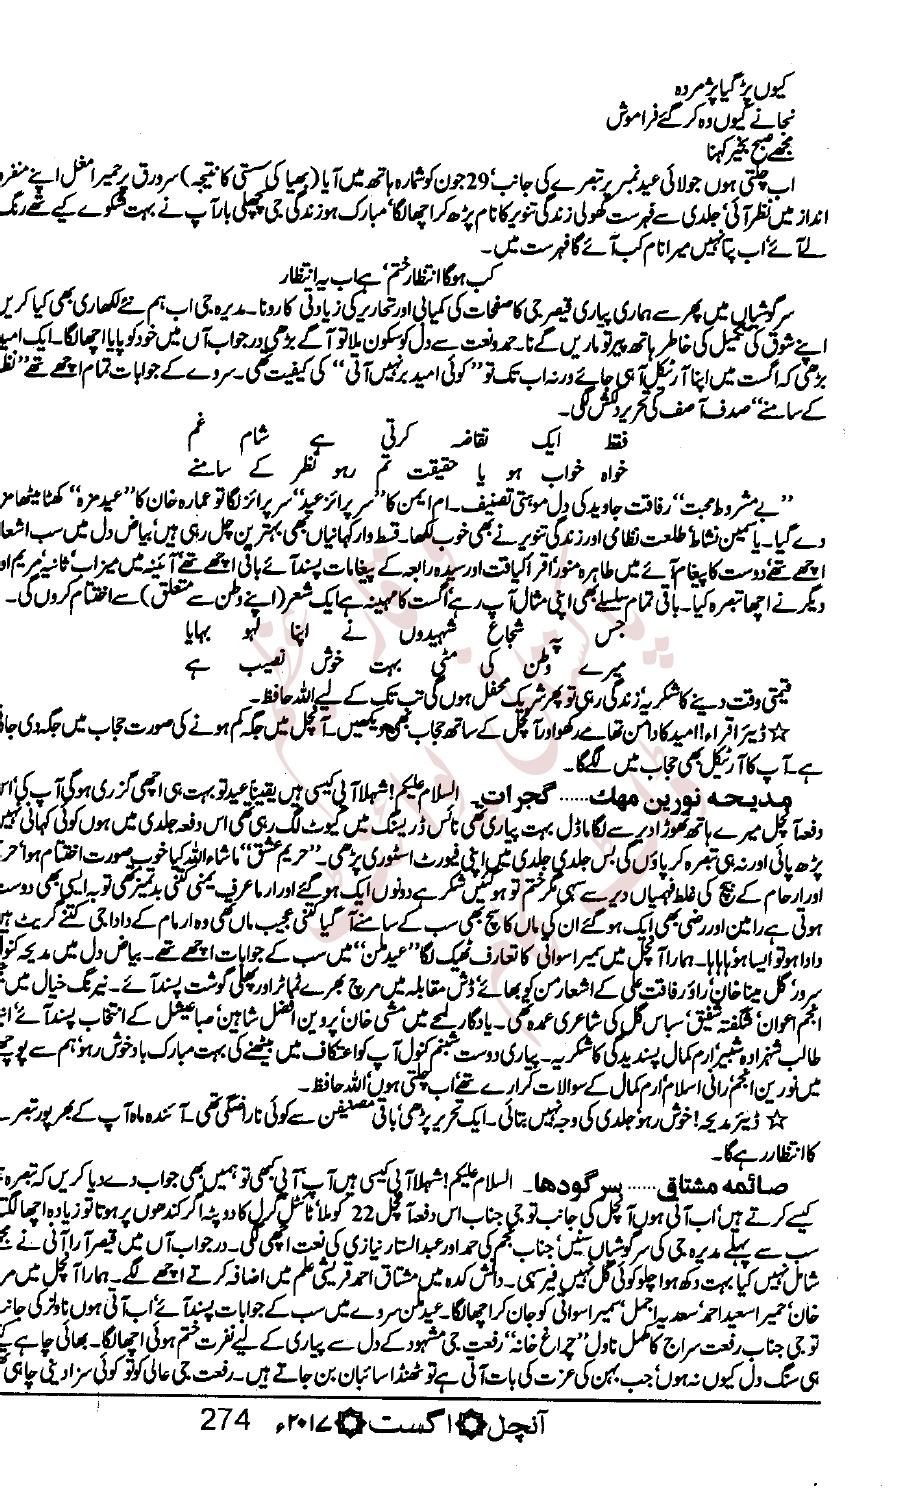 کیوں پڑ گیا پژمردہ
نجانے کیوں وہ کر گئے فراموش
مجھے صبح بخیر کہنا
اب چلتی ہوں جولائی عید نمبر پر تبصرے کی جانب' 29 جون کو شمارہ ہاتھ میں آیا (بھیا کی سستی کا نتیجہ) سرورق پر حمیرا مغل اپنے منفرد
انداز میں نظر آئی' جلدی سے فہرست کھولی زندگی تنویر کا نام پڑھ کر اچھا لگا' مبارک ہو زندگی جی پچھلی بار آپ نے بہت شکوے کیے تھے رنگ
لے آئے' اب پتا نہیں میرا نام کب آئے گا فہرست میں۔
کب ہوگا انتظار ختم' ہے اب یہ انتظار
سرگوشیاں میں پھر سے ہماری پیاری قیصر جی کا صفحات کی کمیابی اور تحاریر کی زیادتی کا رونا۔ مدیرہ جی اب ہم نئے لکھاری بھی کیا کریں
اپنے شوق کی تکمیل کی خاطر ہاتھ پیر تو ماریں گے نا۔ حمد و نعت سے دل کو سکون ملا تو آگے بڑھی در جواب آں میں خود کو پایا اچھا لگا۔ ایک امید
بڑھی کہ اگست میں اپنا آرٹیکل آ ہی جائے ورنہ اب تک تو ''کوئی امید بر نہیں آتی'' کی کیفیت تھی۔ سروے کے جوابات تمام اچھے تھے ''نظر
کے سامنے'' صدف آصف کی تحریر دلکش لگی۔
فقط ایک تقاضہ کرتی ہے شام غم
خواہ خواب ہو یا حقیقت تم رہو نظر کے سامنے
''بے مشروط محبت'' رفاقت جاوید کی دل موہتی تصنیف۔ ام ایمن کا ''سرپرائز عید'' سرپرائز لگا تو عمارہ خان کا ''عید مزہ'' کھٹا میٹھا مزہ
دے گیا۔ یاسمین نشاط' طلعت نظامی اور زندگی تنویر نے بھی خوب لکھا۔ قسط وار کہانیاں بھی بہترین چل رہی ہیں' بیاض دل میں سب اشعار
اچھے تھے' دوست کا پیغام آئے میں طاہرہ منور' اقرأ لیاقت اور سیدہ رابعہ کے پیغامات پسند آئے باقی اچھے تھے' آئینہ میں میزاب' ثانیہ' مریم اور
دیگر نے اچھا تبصرہ کیا۔ باقی تمام سلسلے بھی اپنی مثال آپ رہے' اگست کا مہینہ ہے ایک شعر (اپنے وطن سے متعلق) سے اختتام کروں گی۔
جس پہ شجاع شہیدوں نے اپنا لہو بہایا
میرے وطن کی مٹی بہت خوش نصیب ہے
قیمتی وقت دینے کا شکریہ' زندگی رہی تو پھر شریک محفل ہوں گی تب تک کے لیے اللہ حافظ۔
☆ ڈیئر اقراء! امید کا دامن تھامے رکھو اور آنچل کے ساتھ حجاب بھی دیکھیں۔ آنچل میں جگہ کم ہونے کی صورت حجاب میں جگہ دی جاتی
ہے۔ آپ کا آرٹیکل بھی حجاب میں لگے گا۔
مدیحہ نورین مہک...... گجرات۔ السلام علیکم! شہلا آپی کیسی ہیں یقیناً عید تو بہت ہی اچھی گزری ہوگی آپ کی' اس
دفعہ آنچل میرے ہاتھ تھوڑا دیر سے لگا ماڈل بہت پیاری تھی نائس ڈریسنگ میں کیوٹ لگ رہی تھی اس دفعہ جلدی میں ہوں کوئی کہانی نہیں
پڑھ پائی اور نہ ہی تبصرہ کر پاؤں گی بس جلدی جلدی میں اپنی فیورٹ اسٹوری پڑھی۔ ''حریم عشق'' ماشاء اللہ کیا خوب صورت اختتام ہوا'
اور ارحام کے بیچ کی غلط فہمیاں دیر سے سہی مگر ختم تو ہو گئیں شکر ہے دونوں ایک ہو گئے اور ارما عرف یمنی کتنی بدتمیز تھی توبہ ایسی بھی دوست
ہوتی ہے رامین اور رضی بھی ایک ہو گئے ان کی ماں کا سچ بھی سب کے سامنے آ گیا کتنی عجیب ماں تھی وہ' ارمام کے دادا جی کتنے گریٹ ہیں
دادا ہو تو ایسا ہو' ہاہاہا۔ ہمارا آنچل میں سمیرا سواتی کا تعارف ٹھیک لگا' ''عید ملن'' میں سب کے جوابات اچھے تھے۔ بیاض دل میں مدیحہ کنول
سرور' گل مینا خان' راؤ رفاقت علی کے اشعار من کو بھائے' ڈش مقابلہ میں مرچ بھرے ٹماٹر اور پھلی گوشت پسند آئے۔ نیرنگ خیال میں
انجم اعوان' شگفتہ شفیق' سباس گل کی شاعری عمدہ تھی۔ یادگار لمحے میں مشی خان' پروین افضل شاہین' صبا عیشل کے انتخاب پسند آئے'
طالب شہزادہ شبیر' ارم کمال پسندیدگی کا شکریہ۔ پیاری دوست شبنم کنول آپ کو اعتکاف میں بیٹھنے کی بہت مبارک باد خوش رہو' ہم سے پوچھئے
میں نورین انجم' رانی اسلام' ارم کمال کے سوالات کرارے تھے' اب چلتی ہوں' اللہ حافظ۔
☆ ڈیئر مدیحہ! خوش رہو' جلدی کی وجہ نہیں بتائی۔ ایک تحریر پڑھی' باقی مصنفین سے کوئی ناراضگی تھی۔ آئندہ ماہ آپ کے بھرپور تبصرے
کا انتظار رہے گا۔
صائمہ مشتاق...... سرگودھا۔ السلام علیکم! شہلا آپی کیسی ہیں آپ' آپی کبھی تو ہمیں بھی جواب دے دیا کریں کہ تبصرہ
کیسے کرتے ہیں' اب آتی ہوں آنچل کی جانب تو جی جناب اس دفعہ آنچل 22 کو ملا' ٹائٹل گرل کا دوپٹہ اگر کندھوں پر ہوتا تو زیادہ اچھا لگتا'
سب سے پہلے مدیرہ جی کی سرگوشیاں سنیں' جناب نجم کی حمد اور عبدالستار نیازی کی نعت اچھی لگی۔ در جواب آں میں قیصر آرا آپی نے مجھے
شامل نہیں کیا بہت دکھ ہوا چلو کوئی گل نہیں فیر سہی۔ دانش کدہ میں مشتاق احمد قریشی علم میں اضافہ کرتے اچھے لگے۔ ہمارا آنچل میں
خان' حمیرا سعید احمد' سعدیہ اجمل' سمیرا سواتی کو جان کر اچھا لگا۔ عید ملن سروے میں سب کے جوابات پسند آئے' اب آتی ہوں ناولز کی جانب
تو جی جناب رفعت سراج کا مکمل ناول ''چراغ خانہ'' رفعت جی مشہود کے دل سے پیاری کے لیے نفرت ختم ہوئی اچھا لگا۔ بھائی چاہے کتنے
ہی سنگ دل کیوں نہ ہوں' جب بہن کی عزت کی بات آتی ہے تو ٹھنڈا سائبان بن جاتے ہیں۔ رفعت جی عالی کو تو کوئی سزا دینی چاہیے
آنچل ۞ اگست ۞ ۲۰۱۷ء 274